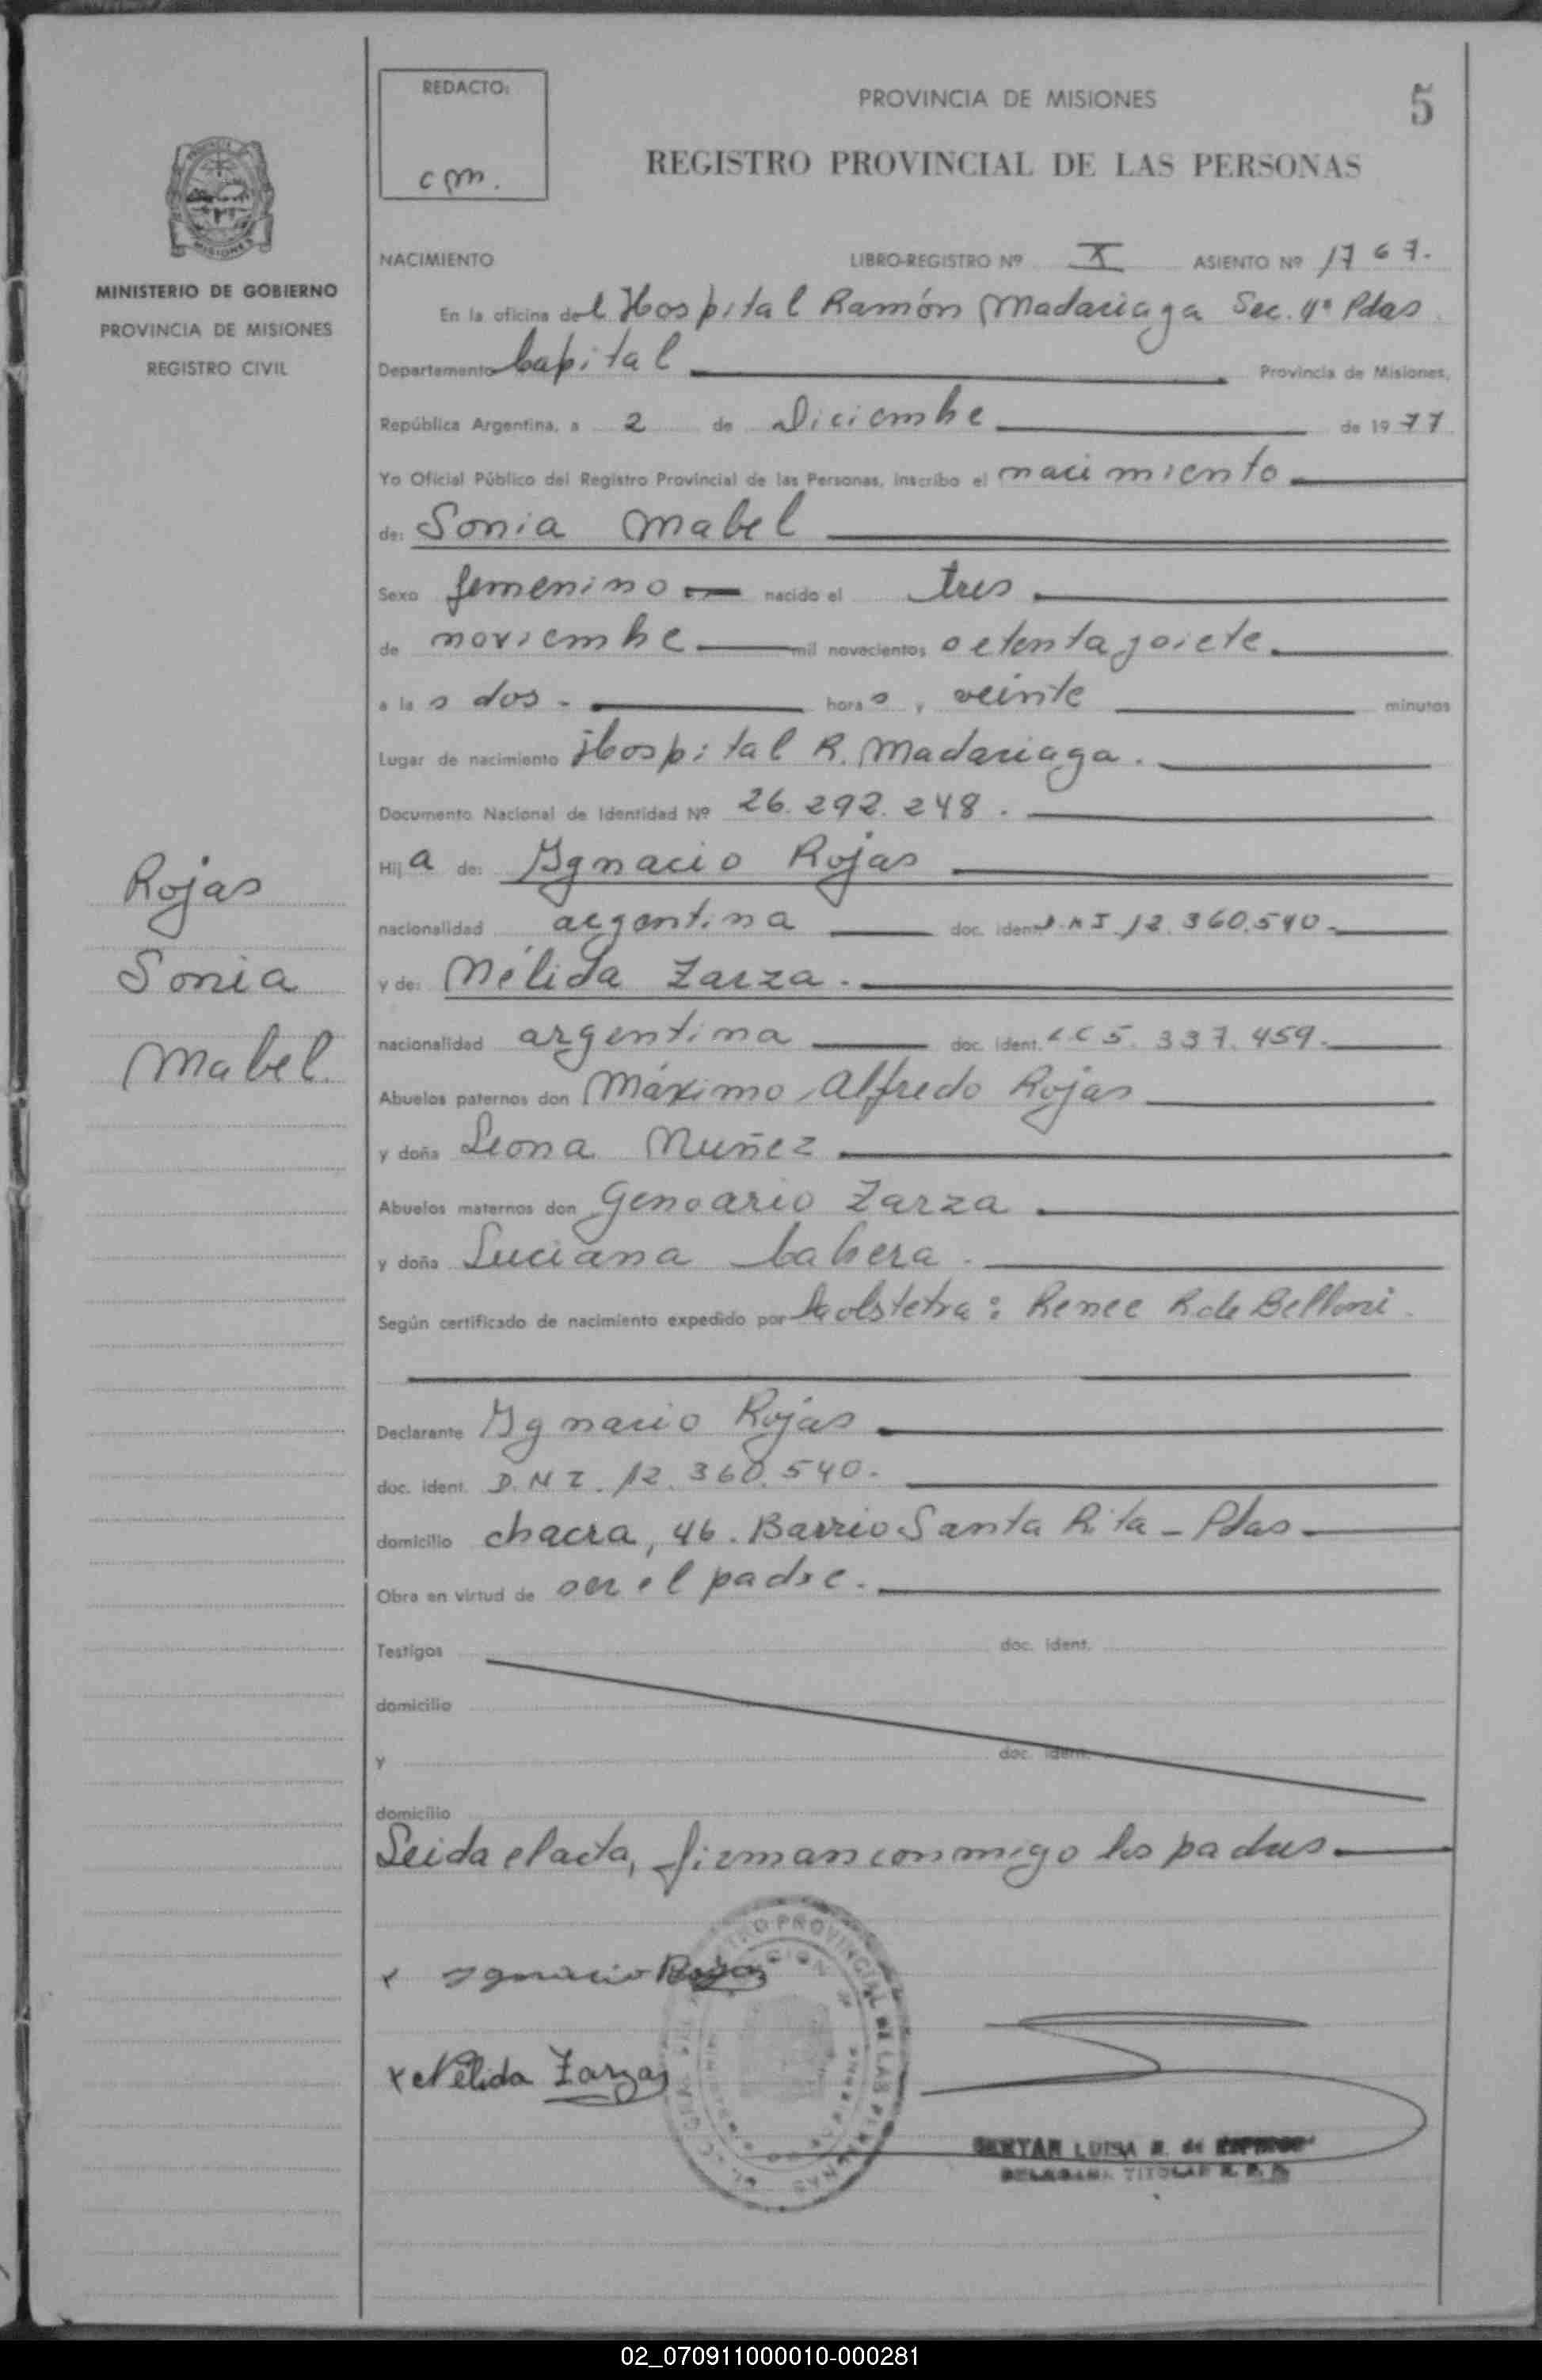 REDACTO:
cm.
PROVINCIA DE MISIONES
5
REGISTRO PROVINCIAL DE LAS PERSONAS
MISIONES
MINISTERIO DE GOBIERNO
PROVINCIA DE MISIONES
REGISTRO CIVIL
NACIMIENTO LIBRO-REGISTRO Nº X ASIENTO Nº 1767.
En la oficina del Hospital Ramón Madariaga Sec. 4ª Pdas
Departamento Capital Provincia de Misiones,
República Argentina, a 2 de Diciembre de 1977
Yo Oficial Público del Registro Provincial de las Personas, inscribo el nacimiento
de: Sonia Mabel
Sexo femenino nacido el tres
de noviembre mil novecientos setenta y siete.
a las dos. horas, veinte minutos
Lugar de nacimiento Hospital R. Madariaga.
Documento Nacional de Identidad Nº 26.292.248.
Hija de: Ygnacio Rojas
nacionalidad argentina doc. ident. D.N.I. 12.360.540.
y de: Nélida Zarza.
nacionalidad argentina doc. ident. L.C 5.337.459.
Abuelos paternos don Máximo Alfredo Rojas
y doña Leona Nuñez
Abuelos maternos don Genoario Zarza
y doña Luciana Cabera.
Según certificado de nacimiento expedido por la obstetra: Renee R. de Belloni.
Declarante Ygnacio Rojas
doc. ident. D.N.I. 12.360.540.
domicilio chacra, 46. Barrio Santa Rita - Pdas
Obra en virtud de ser el padre.
Testigos doc. ident.
domicilio
y doc. ident.
domicilio
Leida el acta, firman conmigo los padres
x Ygnacio Rojas
x Nélida Zarza
REGISTRO PROVINCIAL DE LAS PERSONAS
LUISA
TITULAR
Rojas
Sonia
Mabel.
02_070911000010-000281